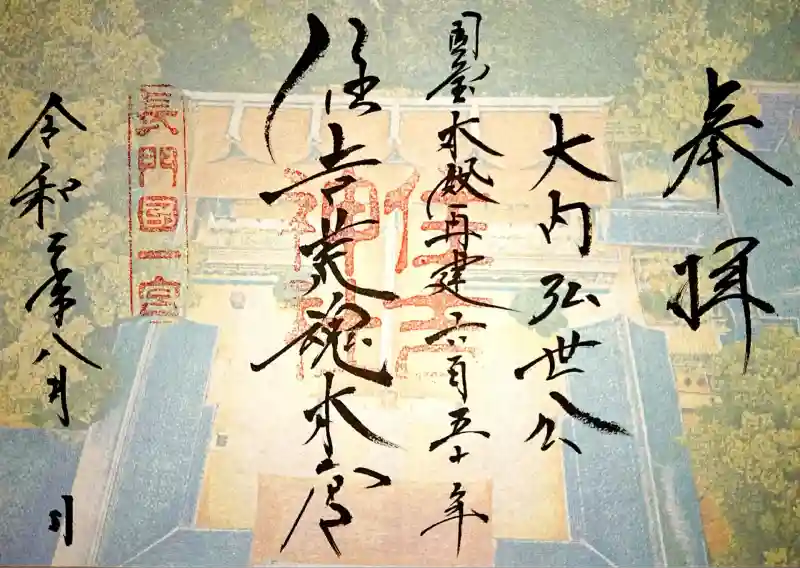 奉拝
大内弘世公
国宝本殿再建六百五十年
住吉荒魂本宮
住吉
神社
長門国一宮
令和二年八月 日